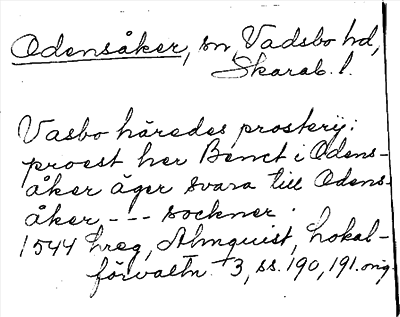 Odensåker, sn, Vadsbo hd,
Skarab. l.
Vasbo häredes prosterij:
proest her Benct i Odens-
åker äger svara till Odens-
åker --- sockner.
1544 hreg, Almquist, Lokal-
förvaltn. 3, ss. 190, 191. orig.